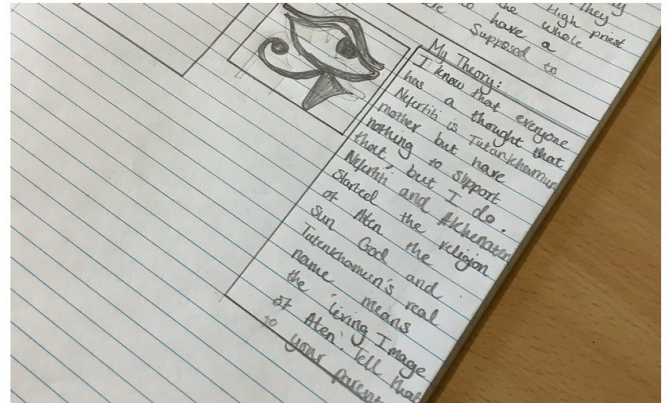 They
High priest
the whole
to have a
Supposed to
My Theory:
I know that everyone
has a thought that
Nefertiti is Tutankhamun
mother but have
nothing to support
that, but I do.
Nefertiti and Akhenaten
Started the religion
of Aten the
Sun God and
Tutenkhamun's real
name means
the 'Living Image
of Aten'. Tell that
to your parent